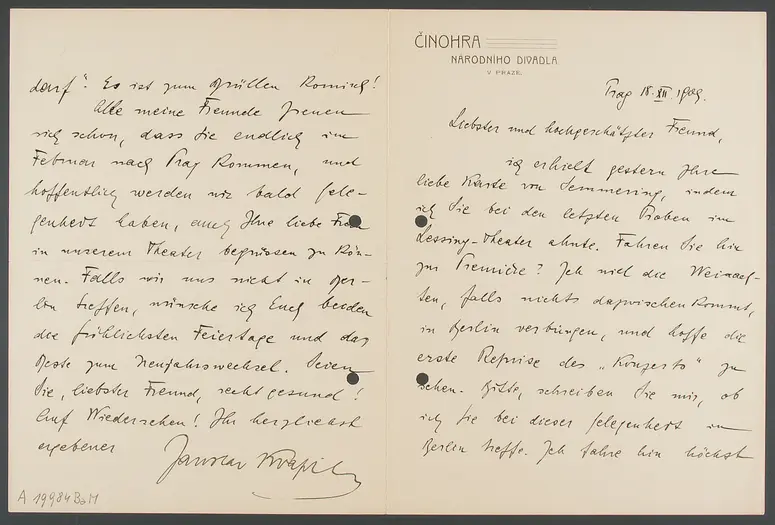 ČINOHRA
NÁRODNÍHO DIVADLA
V PRAZE.
Prag 18. XII 1909.
Liebster und hochgeschätzter Freund,
ich erhielt gestern Ihre
liebe Karte von Semmering, indem
ich Sie bei den letzten Proben im
Lessing-Theater ahnte. Fahren Sie hin
zur Premiere? Ich will die Weinach-
ten, falls nichts dazwischen kommt,
in Berlin verbringen, und hoffe die
erste Reprise des „Konzerts" zu
sehen. Bitte, schreiben Sie mir, ob
ich Sie bei dieser Gelegenheit in
Berlin treffe. Ich fahre hin höchst
darf". Es ist zum Brüllen komisch!
Alle meine Freunde freuen
sich schon, dass Sie endlich im
Februar nach Prag kommen, und
hoffentlich werden wir bald Gele-
genheit haben, auch Ihre liebe Frau
in unserem Theater begrüssen zu kön-
nen. Falls wir uns nicht in Ber-
lin treffen, wünsche ich Euch beiden
die fröhlichsten Feiertage und das
Beste zum Neujahrswechsel. Seien
Sie, liebster Freund, recht gesund!
Auf Wiedersehen! Ihr herzlichst
ergebener Jaroslav Kvapil
A 19984 BaM